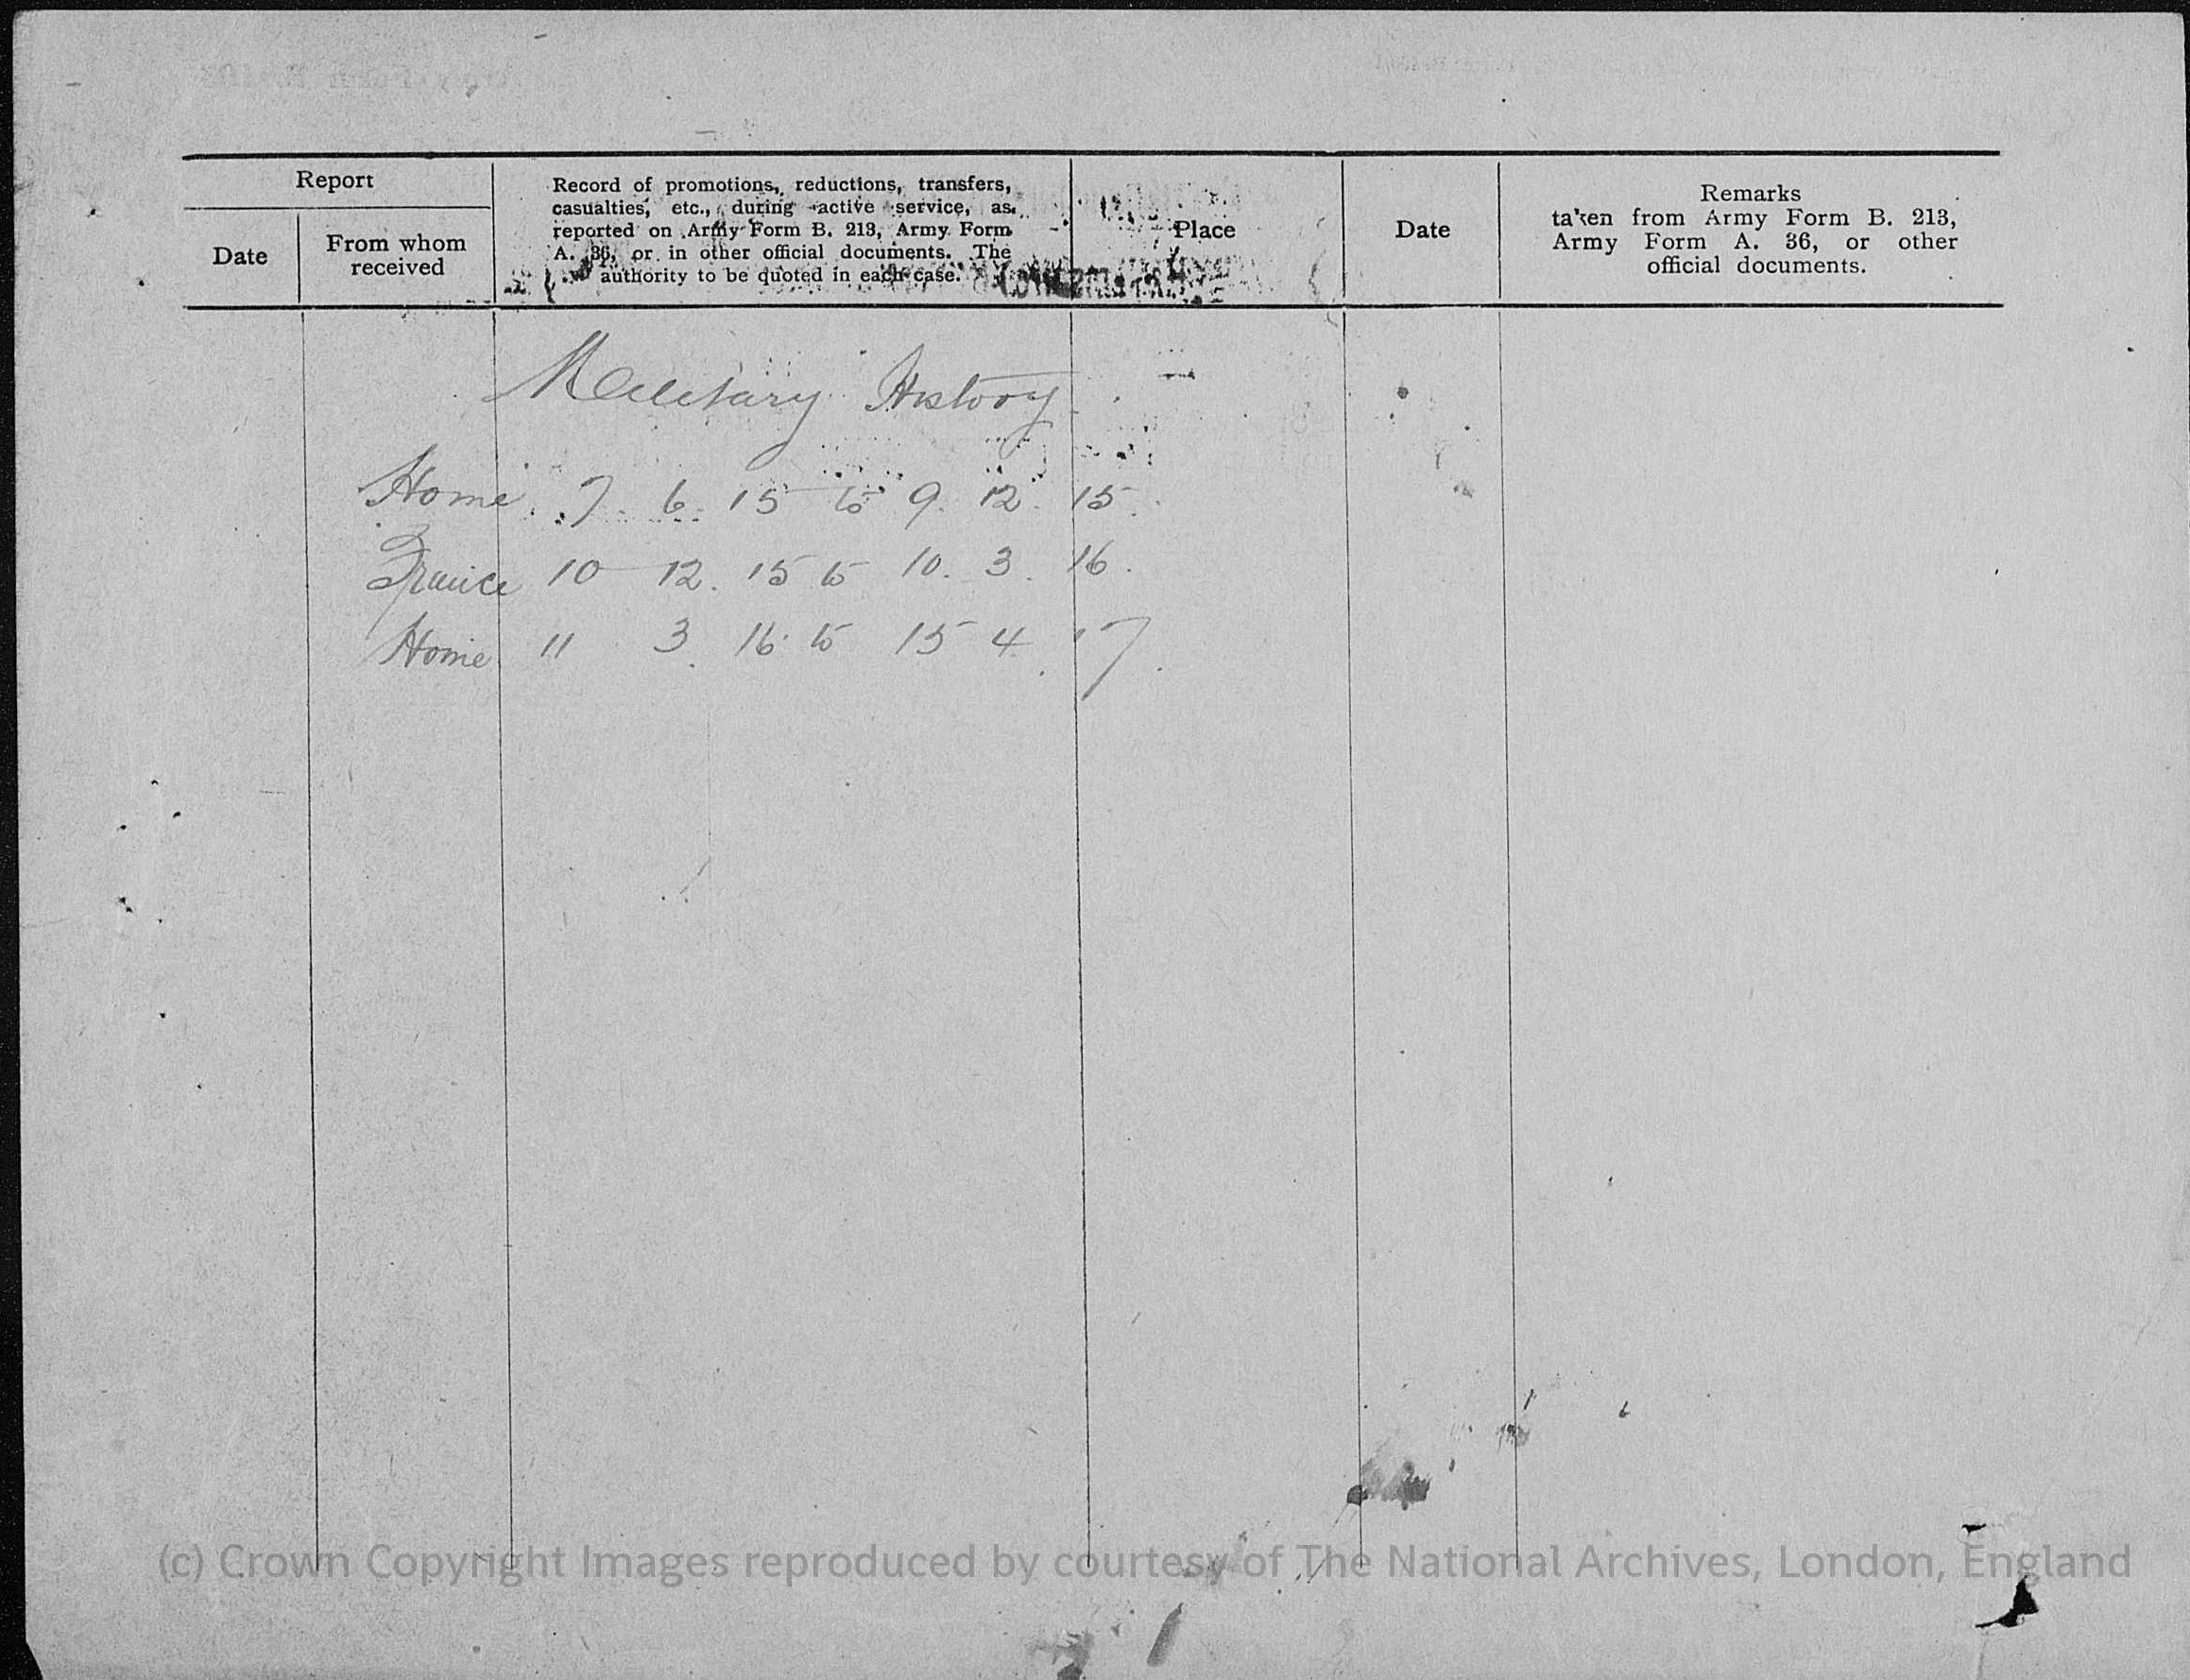 Report
Date
From whom
received
Record of promotions, reductions, transfers,
casualties, etc., during active service, as
reported on Army Form B. 213, Army Form
A. 36, or in other official documents. The
authority to be quoted in each case.
Place
Date
Remarks
taken from Army Form B. 213,
Army Form A. 36, or other
official documents.
Military History
Home 7 6 15 to 9. 12. 15.
France 10 12. 15 to 10. 3. 16.
Home 11 3. 16 to 15 4. 17.
(c) Crown Copyright Images reproduced by courtesy of The National Archives, London, England